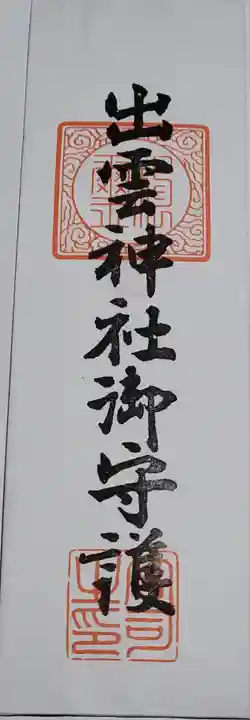 出雲神社御守護